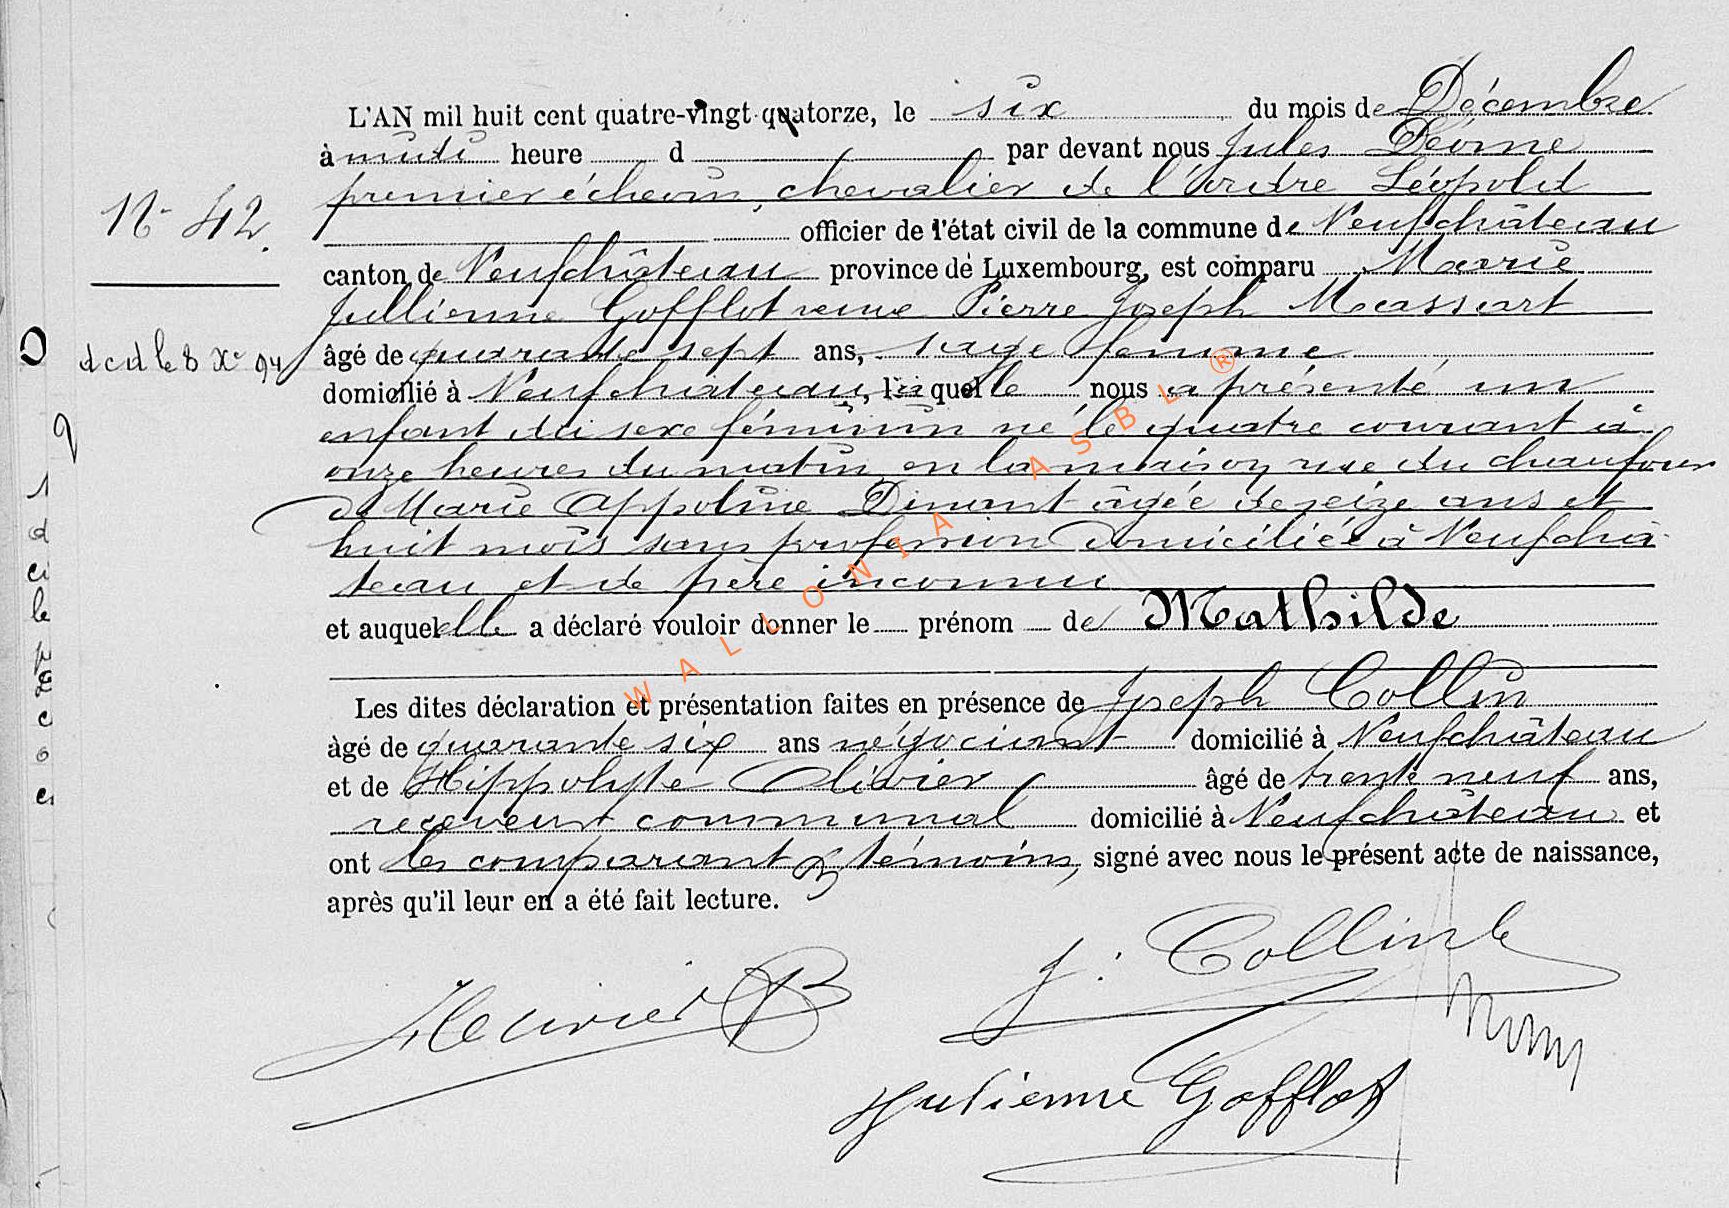 L'AN mil huit cent quatre-vingt quatorze, le six du mois de Décembre
à midi heure d par devant nous Jules Déome
premier échevin, chevalier de l'ordre Léopold
N° 42.
officier de l'état civil de la commune de Neufchâteau
canton de Neufchâteau province de Luxembourg, est comparu Marie
Jullienne Gofflot veuve Pierre Joseph Massart
dcd le 8 Xe 94
âgé de quarante sept ans, sage femme
domicilié à Neufchâteau, laquelle nous a présenté un
enfant du sexe féminin né le quatre courant à
onze heures du matin en la maison rue du chaufour
de Marie Appoline Dinant âgée de seize ans et
huit mois sans profession domiciliée à Neufchâ-
teau et de père inconnu
et auquel elle a déclaré vouloir donner le prénom de Mathilde
Les dites déclaration et présentation faites en présence de Joseph Collin
âgé de quarante six ans négociant domicilié à Neufchâteau
et de Hippolyte Olivier âgé de trente neuf ans,
receveur communal domicilié à Neufchâteau et
ont les comparant & témoins, signé avec nous le présent acte de naissance,
après qu'il leur en a été fait lecture.
J. Collin
Julienne Gofflot
WALLONIA ASBL ®